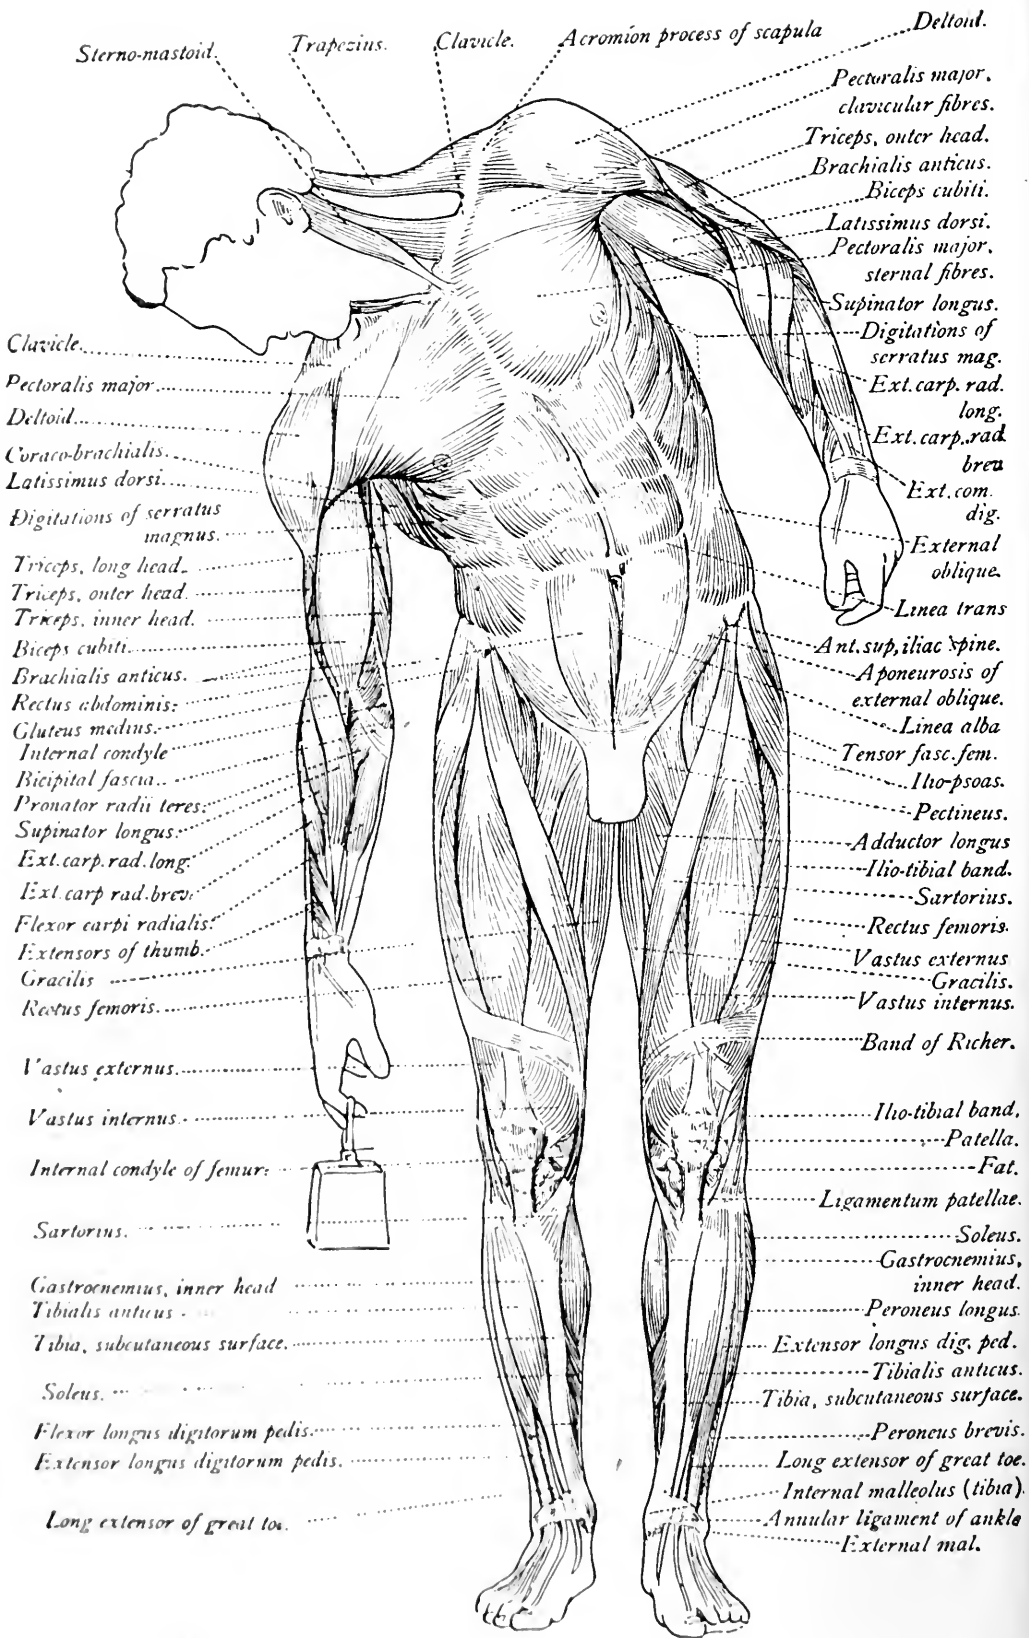 Sterno-mastoid.
Trapezius.
Clavicle.
Acromion process of scapula
Deltoid.
Pectoralis major.
clavicular fibres.
Triceps, outer head.
Brachialis anticus.
Biceps cubiti.
Latissimus dorsi.
Pectoralis major.
sternal fibres.
Supinator longus.
Digitations of
serratus mag.
Ext. carp. rad.
long.
Ext. carp. rad
brev
Ext. com.
dig.
External
oblique.
Linea trans
Ant. sup, iliac spine.
Aponeurosis of
external oblique.
Linea alba
Tensor fasc. fem.
Ilio-psoas.
Pectineus.
Adductor longus
Ilio-tibial band.
Sartorius.
Rectus femoris.
Vastus externus
Gracilis.
Vastus internus.
Band of Richer.
Ilio-tibial band.
Patella.
Fat.
Ligamentum patellae.
Soleus.
Gastrocnemius,
inner head.
Peroneus longus.
Extensor longus dig. ped.
Tibialis anticus.
Tibia, subcutaneous surface.
Peroneus brevis.
Long extensor of great toe.
Internal malleolus (tibia).
Annular ligament of ankle
External mal.
Clavicle.
Pectoralis major.
Deltoid.
Coraco-brachialis.
Latissimus dorsi.
Digitations of serratus
magnus.
Triceps, long head.
Triceps, outer head.
Triceps, inner head.
Biceps cubiti.
Brachialis anticus.
Rectus abdominis.
Gluteus medius.
Internal condyle
Bicipital fascia.
Pronator radii teres.
Supinator longus.
Ext. carp. rad. long.
Ext. carp rad. brev.
Flexor carpi radialis.
Extensors of thumb.
Gracilis
Rectus femoris.
Vastus externus.
Vastus internus.
Internal condyle of femur.
Sartorius.
Gastrocnemius, inner head
Tibialis anticus
Tibia, subcutaneous surface.
Soleus.
Flexor longus digitorum pedis.
Extensor longus digitorum pedis.
Long extensor of great toe.